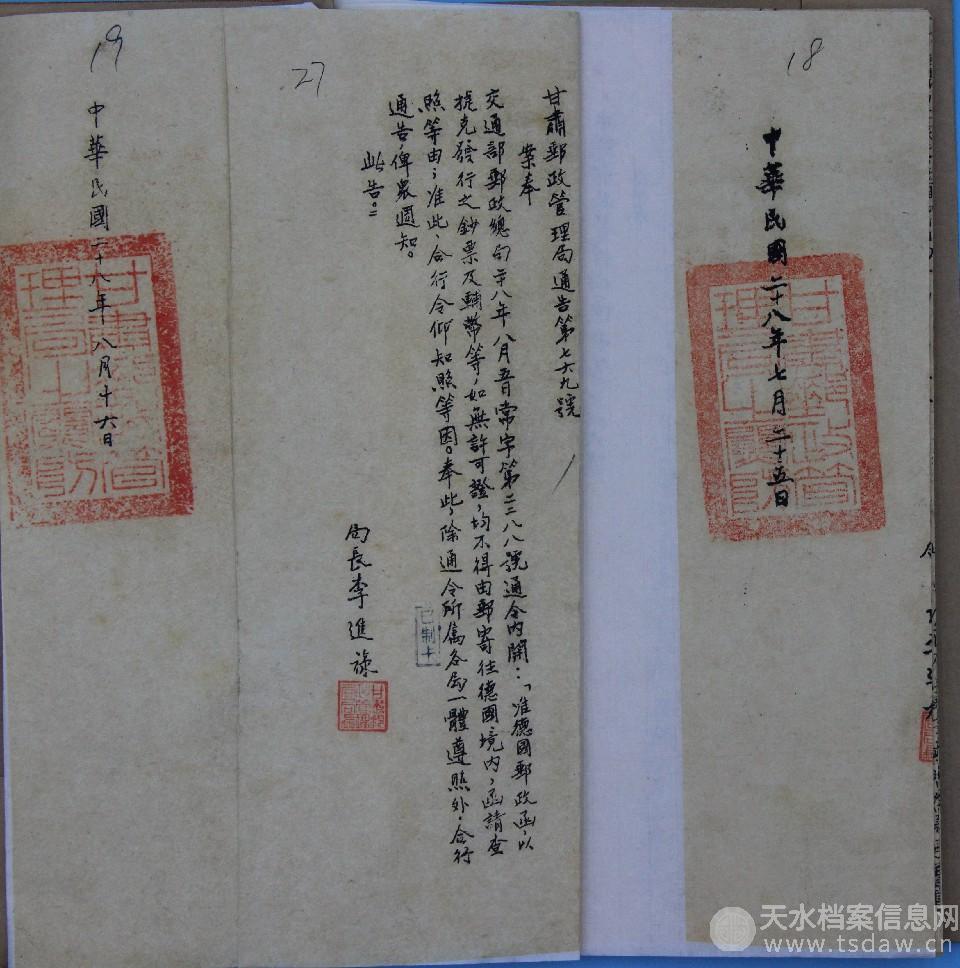 18
中華民國二十八年七月二十五日
27
甘肅郵政管理局通告第七六九號
案奉
交通部郵政總局廿八年八月五日常字第二三八八號通令內開：「准德國郵政函，以
捷克發行之鈔票及輔幣等，如無許可證，均不得由郵寄往德國境內，函請查
照等由；准此，合行令仰知照等因。奉此，除通令所屬各局一體遵照外，合行
通告，俾衆週知。
此告。
已制卡
局長李進祿
19
中華民國二十八年八月十六日
天水档案信息网
www.tsdaw.cn